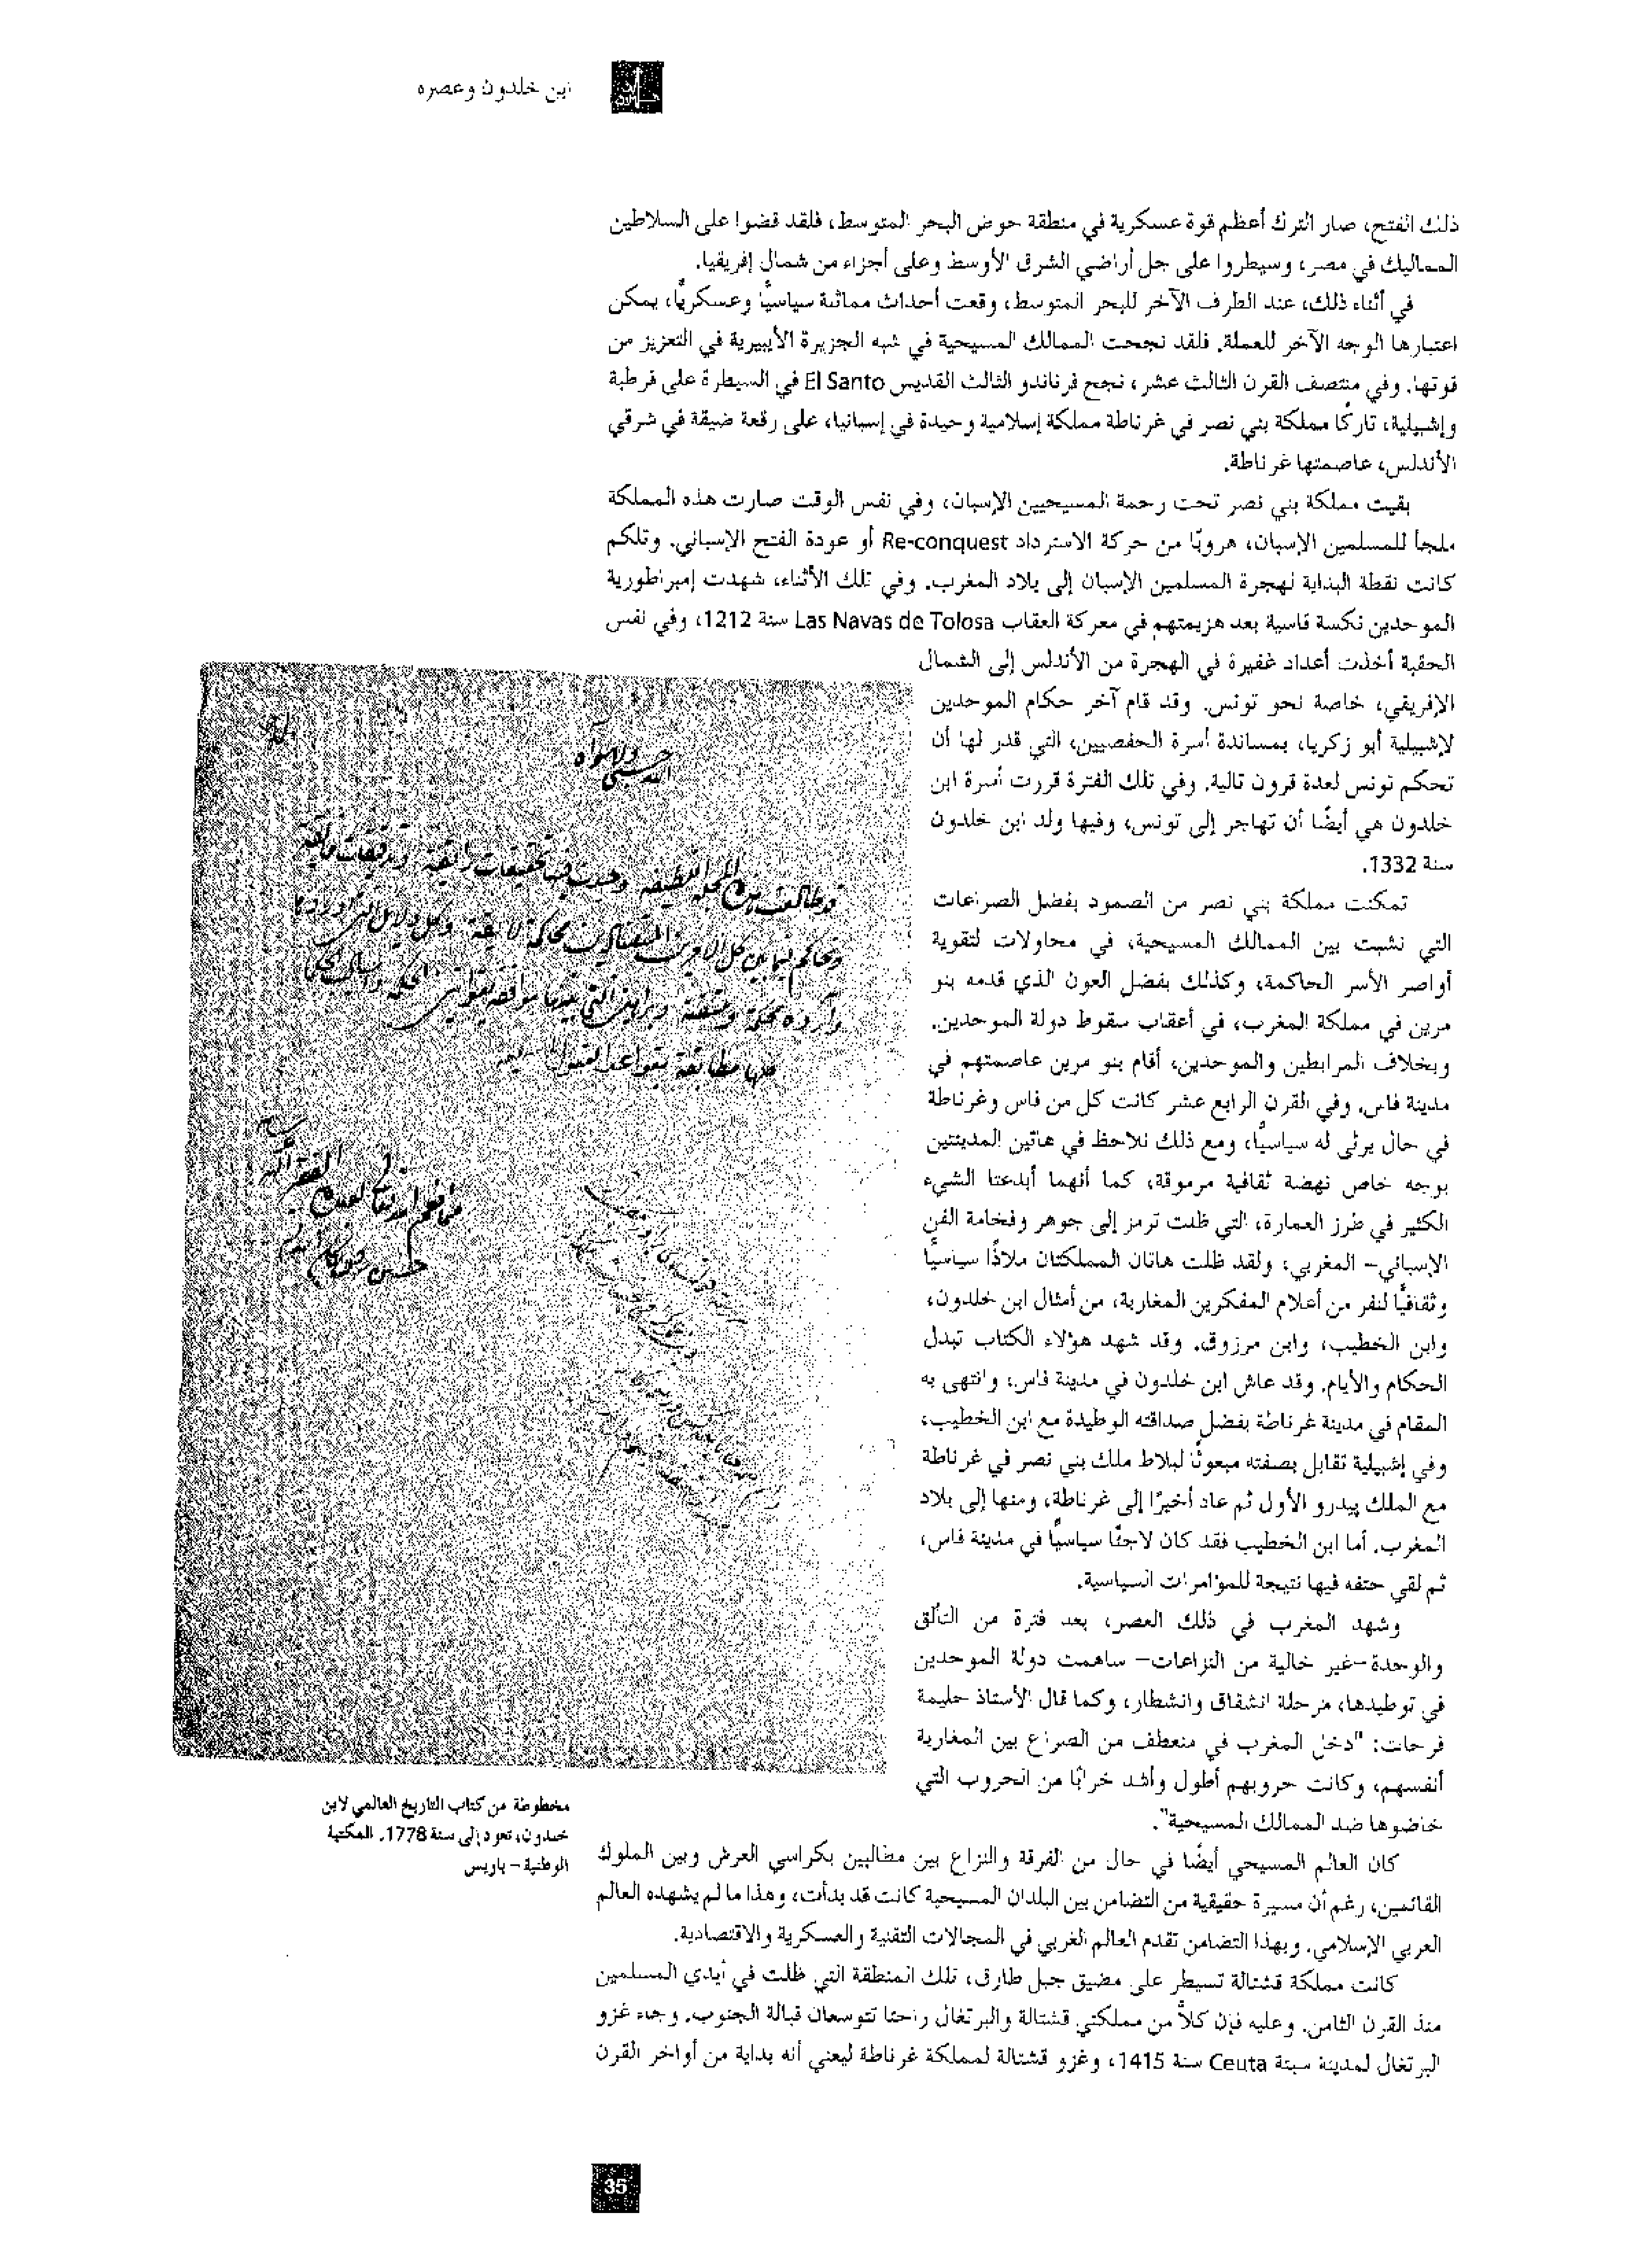 ابن خلدون وعصره
ذلك الفتح، صار الترك أعظم قوة عسكرية في منطقة حوض البحر المتوسط، فلقد قضوا على السلاطين
المماليك في مصر، وسيطروا على جل أراضي الشرق الأوسط وعلى أجزاء من شمال إفريقيا.
في أثناء ذلك، عند الطرف الآخر للبحر المتوسط، وقعت أحداث مماثلة سياسيًّا وعسكريًّا، يمكن
اعتبارها الوجه الآخر للعملة. فلقد نجحت الممالك المسيحية في شبه الجزيرة الأيبيرية في التعزيز من
قوتها. وفي منتصف القرن الثالث عشر، نجح فرناندو الثالث القديس El Santo في السيطرة على قرطبة
وإشبيلية، تاركًا مملكة بني نصر في غرناطة مملكة إسلامية وحيدة في إسبانيا، على رقعة ضيقة في شرقي
الأندلس، عاصمتها غرناطة.
بقيت مملكة بني نصر تحت رحمة المسيحيين الإسبان، وفي نفس الوقت صارت هذه المملكة
ملجأ للمسلمين الإسبان، هروبًا من حركة الاسترداد Re-conquest أو عودة الفتح الإسباني. وتلكم
كانت نقطة البداية لهجرة المسلمين الإسبان إلى بلاد المغرب. وفي تلك الأثناء، شهدت إمبراطورية
الموحدين نكسة قاسية بعد هزيمتهم في معركة العقاب Las Navas de Tolosa سنة 1212، وفي نفس
الحقبة أخذت أعداد غفيرة في الهجرة من الأندلس إلى الشمال
الإفريقي، خاصة نحو تونس. وقد قام آخر حكام الموحدين
لإشبيلية أبو زكريا، بمساندة أسرة الحفصيين، التي قدر لها أن
تحكم تونس لعدة قرون تالية. وفي تلك الفترة قررت أسرة ابن
خلدون هي أيضًا أن تهاجر إلى تونس، وفيها ولد ابن خلدون
سنة 1332.
تمكنت مملكة بني نصر من الصمود بفضل الصراعات
التي نشبت بين الممالك المسيحية، في محاولات لتقوية
أواصر الأسر الحاكمة، وكذلك بفضل العون الذي قدمه بنو
مرين في مملكة المغرب، في أعقاب سقوط دولة الموحدين.
وبخلاف المرابطين والموحدين، أقام بنو مرين عاصمتهم في
مدينة فاس. وفي القرن الرابع عشر كانت كل من فاس وغرناطة
في حال يرثى له سياسيًّا، ومع ذلك نلاحظ في هاتين المدينتين
بوجه خاص نهضة ثقافية مرموقة، كما أنهما أبدعتا الشيء
الكثير في طرز العمارة، التي ظلت ترمز إلى جوهر وفخامة الفن
الإسباني- المغربي، ولقد ظلت هاتان المملكتان ملاذًا سياسيًّا
وثقافيًّا لنفر من أعلام المفكرين المغاربة، من أمثال ابن خلدون،
وابن الخطيب، وابن مرزوق. وقد شهد هؤلاء الكتاب تبدل
الحكام والأيام. وقد عاش ابن خلدون في مدينة فاس، وانتهى به
المقام في مدينة غرناطة بفضل صداقته الوطيدة مع ابن الخطيب،
وفي إشبيلية تقابل بصفته مبعوثًا لبلاط ملك بني نصر في غرناطة
مع الملك پيدرو الأول ثم عاد أخيرًا إلى غرناطة، ومنها إلى بلاد
المغرب. أما ابن الخطيب فقد كان لاجئًا سياسيًّا في مدينة فاس،
ثم لقي حتفه فيها نتيجة للمؤامرات السياسية.
وشهد المغرب في ذلك العصر، بعد فترة من التألق
والوحدة -غير خالية من النزاعات- ساهمت دولة الموحدين
في توطيدها، مرحلة انشقاق وانشطار، وكما قال الأستاذ حليمة
فرحات: "دخل المغرب في منعطف من الصراع بين المغاربة
أنفسهم، وكانت حروبهم أطول وأشد خرابًا من الحروب التي
خاضوها ضد الممالك المسيحية".
كان العالم المسيحي أيضًا في حال من الفرقة والنزاع بين مطالبين بكراسي العرش وبين الملوك
القائمين، رغم أن مسيرة حقيقية من التضامن بين البلدان المسيحية كانت قد بدأت، وهذا ما لم يشهده العالم
العربي الإسلامي. وبهذا التضامن تقدم العالم الغربي في المجالات التقنية والعسكرية والاقتصادية.
كانت مملكة قشتالة تسيطر على مضيق جبل طارق، تلك المنطقة التي ظلت في أيدي المسلمين
منذ القرن الثامن. وعليه فإن كلاًّ من مملكتي قشتالة والبرتغال راحتا تتوسعان قبالة الجنوب. وجاء غزو
البرتغال لمدينة سبتة Ceuta سنة 1415، وغزو قشتالة لمملكة غرناطة ليعني أنه بداية من أواخر القرن
مخطوطة من كتاب التاريخ العالمي لابن
خلدون، تعود إلى سنة 1778. المكتبة
الوطنية - باريس
35